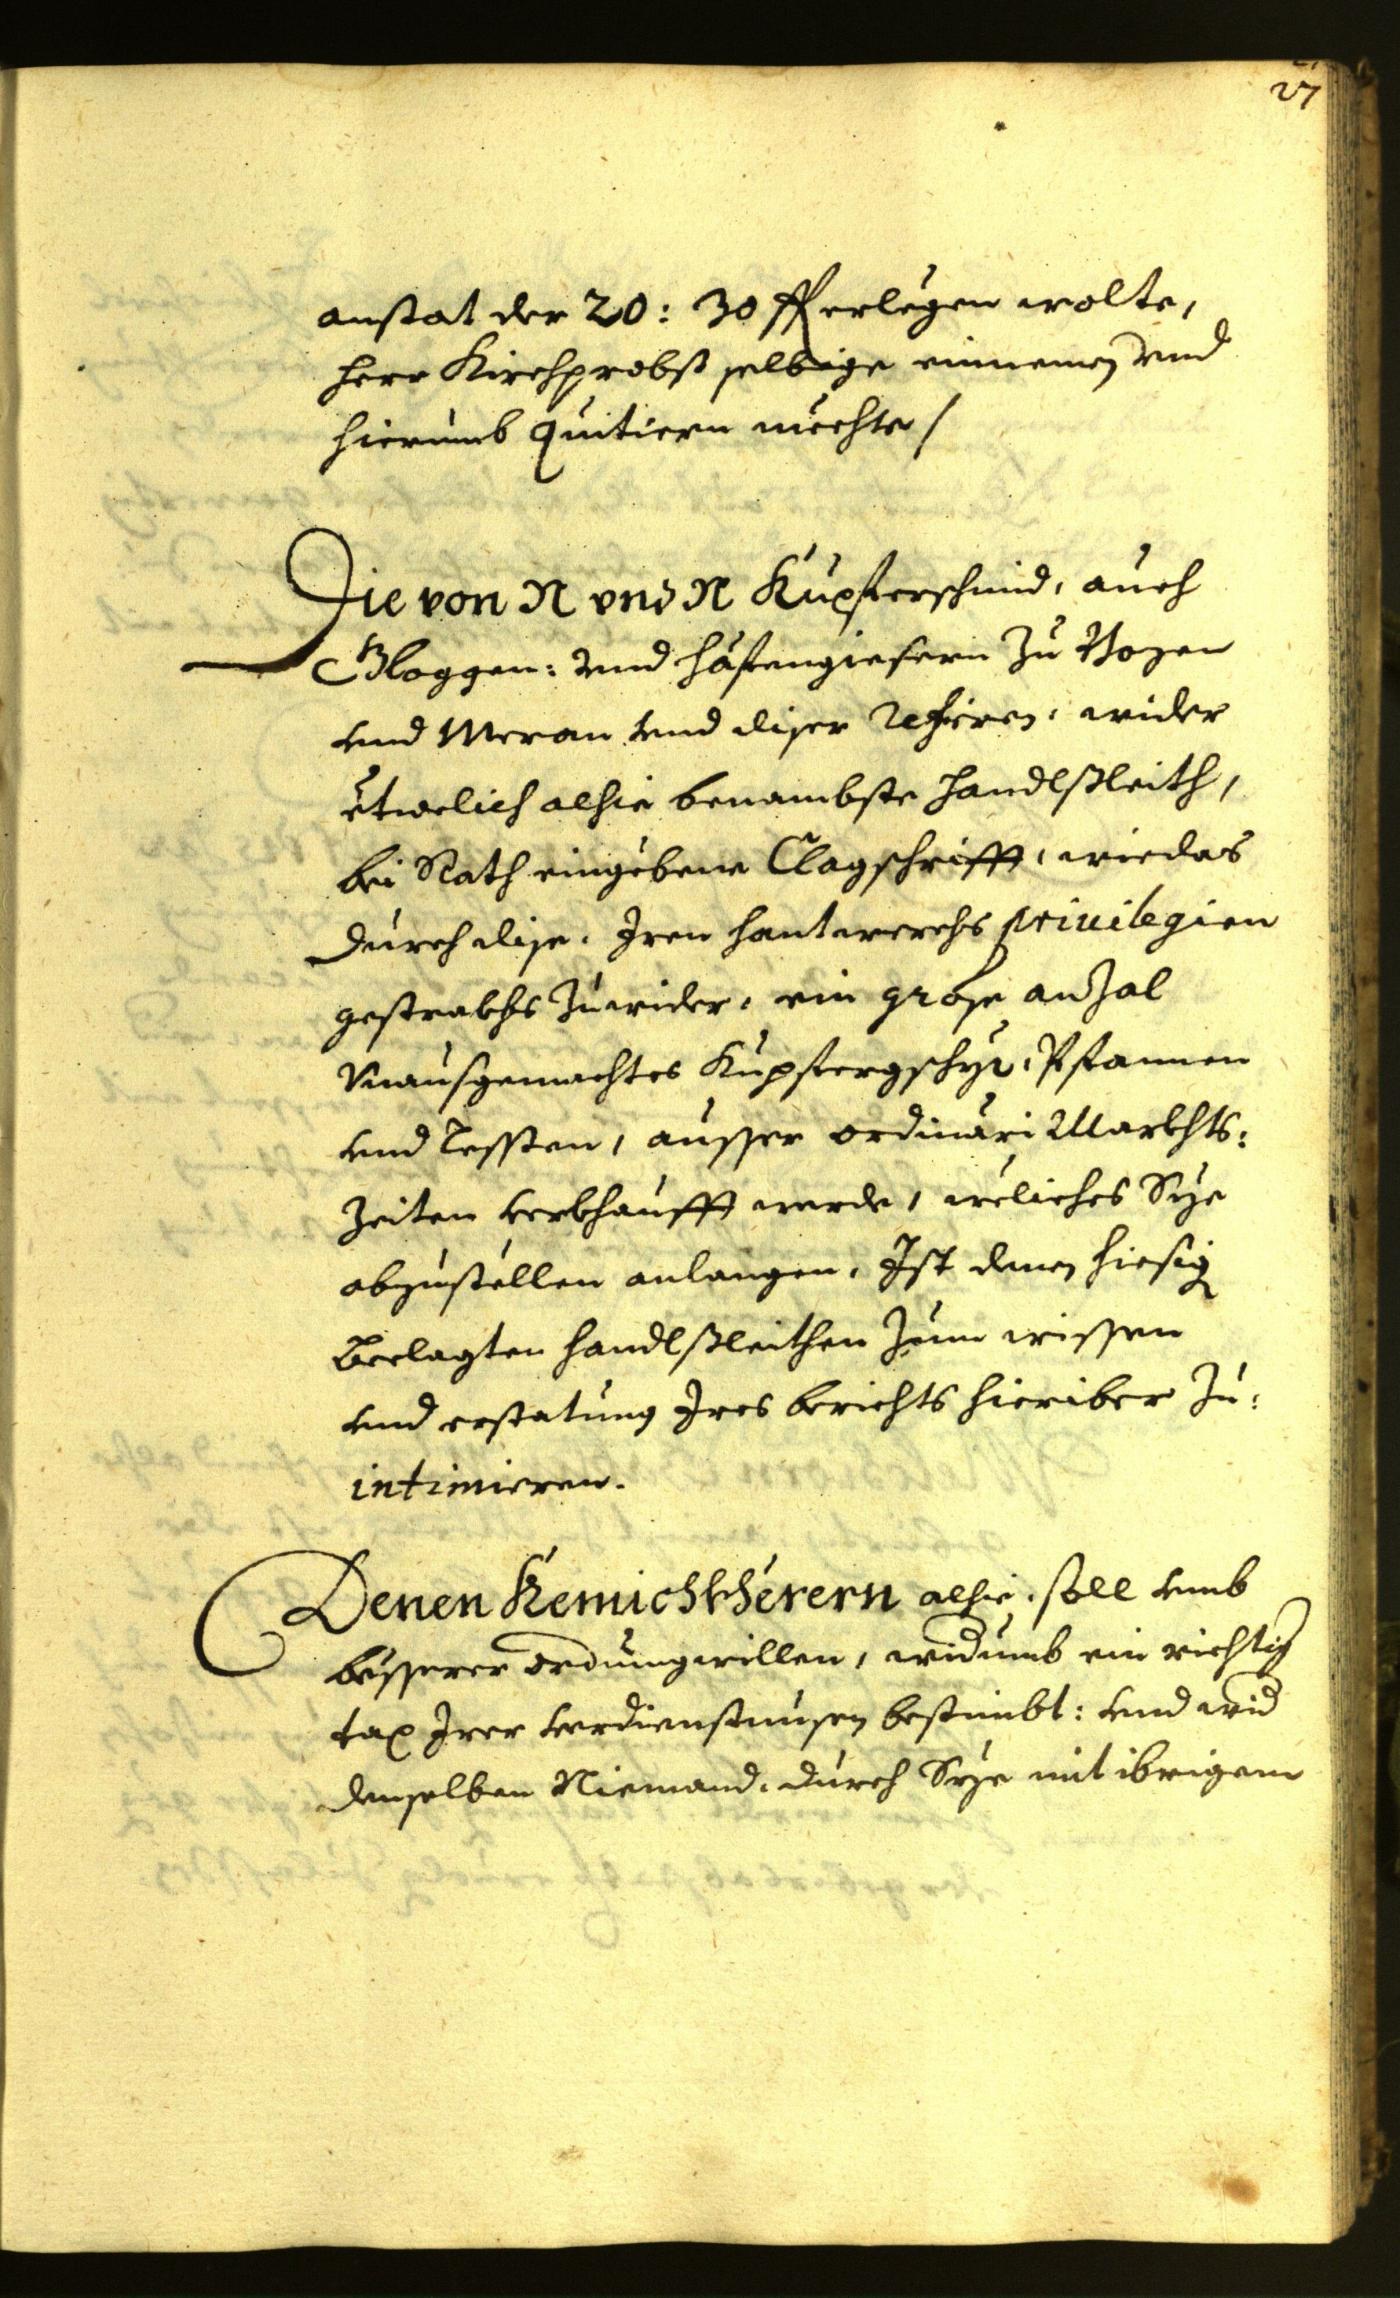 27
anstat der 20: 30 ff erlegen wolte,
herr Kirchprobst selbige einnemen vnd
hierumb quitiern mechte /
Die von N vnd N Kupferschmid, auch
Gloggen: vnd Hafengiesern zu Bozen
vnd Meran vnd diser Refieren, wider
etwelich alhie benambste Handlßleith,
bei Rath eingebene Clagschrifft, wie das
durch dise, Iren hantwerchs privilegien
gestrakhs zuwider, ein grose anzal
Vnausgemachtes Kupfergschyr, Pfannen
vnd Kessten, ausser ordinari Markhts:
zeiten verkhaufft werde, weliches Sye
abzustellen anlangen, Ist denen hiesig
Beclagten handlßleithen zum wissen
vnd erstatung Ires berichts hieriber zu:
intimieren.
Denen Kemichkherern alhie, soll vmb
besserer ordnung willen, widumb ein richtig
tax Irer verdienstnusen bestimbt: vnd wid
denselben Niemand, durch Sye mit ibrigem